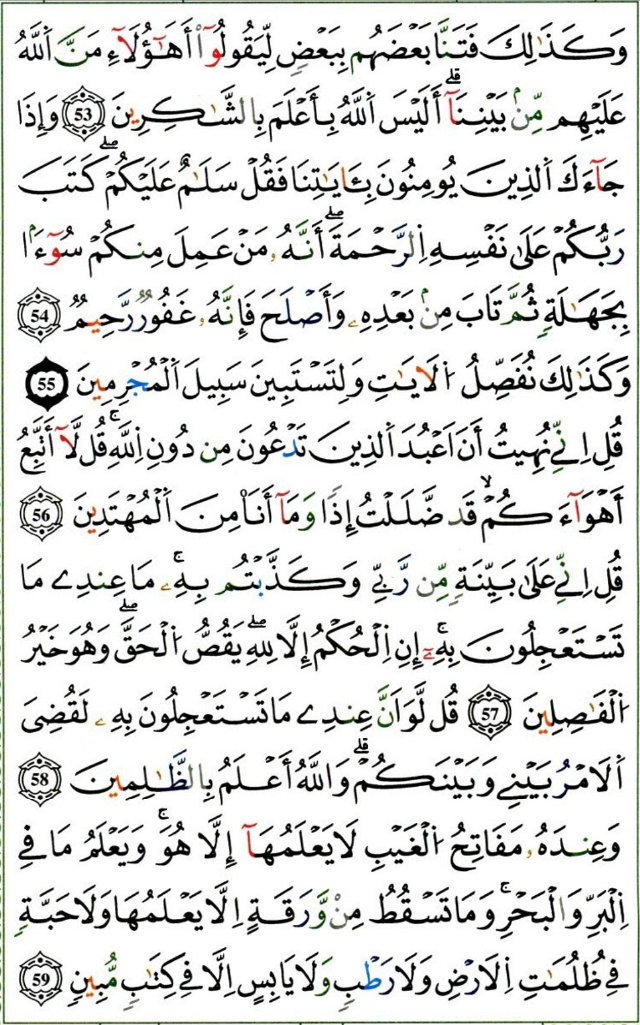 وَكَذَٰلِكَ فَتَنَّا بَعْضَهُم بِبَعْضٖ لِّيَقُولُوٓاْ أَهَٰٓؤُلَآءِ مَنَّ اَ۬للَّهُ
عَلَيْهِم مِّنۢ بَيْنِنَآۗ أَلَيْسَ اَ۬للَّهُ بِأَعْلَمَ بِالشَّٰكِرِينَ 53 وَإِذَا
جَآءَكَ اَ۬لذِينَ يُومِنُونَ بِـَٔايَٰتِنَا فَقُلْ سَلَٰمٌ عَلَيْكُمْۖ كَتَبَ
رَبُّكُمْ عَلَىٰ نَفْسِهِ اِ۬لرَّحْمَةَۖ أَنَّهُۥ مَنْ عَمِلَ مِنكُمْ سُوٓءَاۢ
بِجَهَٰلَةٖ ثُمَّ تَابَ مِنۢ بَعْدِهِۦ وَأَصْلَحَ فَإِنَّهُۥ غَفُورٞ رَّحِيمٞ 54
وَكَذَٰلِكَ نُفَصِّلُ اُ۬لَايَٰتِ وَلِتَسْتَبِينَ سَبِيلَ اَ۬لْمُجْرِمِينَ 55
قُلِ اِنِّے نُهِيتُ أَنَ اَعْبُدَ اَ۬لذِينَ تَدْعُونَ مِن دُونِ اِ۬للَّهِۚ قُل لَّآ أَتَّبِعُ
أَهْوَآءَكُمْۙ قَد ضَّلَلْتُ إِذاٗ وَمَآ أَنَا مِنَ اَ۬لْمُهْتَدِينَ 56
قُلِ اِنِّے عَلَىٰ بَيِّنَةٖ مِّن رَّبِّے وَكَذَّبْتُم بِهِۦۚ مَا عِندِے مَا
تَسْتَعْجِلُونَ بِهِۦٓۚ إِنِ اِ۬لْحُكْمُ إِلَّا لِلهِۖ يَقُصُّ اُ۬لْحَقَّۖ وَهُوَ خَيْرُ
اُ۬لْفَٰصِلِينَ 57 قُل لَّوَ اَنَّ عِندِے مَا تَسْتَعْجِلُونَ بِهِۦ لَقُضِيَ
اَ۬لَامْرُ بَيْنِے وَبَيْنَكُمْۗ وَاللَّهُ أَعْلَمُ بِالظَّٰلِمِينَ 58
وَعِندَهُۥ مَفَاتِحُ اُ۬لْغَيْبِ لَا يَعْلَمُهَآ إِلَّا هُوَۚ وَيَعْلَمُ مَا فِے
اِ۬لْبَرِّ وَالْبَحْرِۚ وَمَا تَسْقُطُ مِنْ وَّرَقَةٍ اِلَّا يَعْلَمُهَا وَلَا حَبَّةٖ
فِے ظُلُمَٰتِ اِ۬لَارْضِ وَلَا رَطْبٖ وَلَا يَابِسٍ اِلَّا فِے كِتَٰبٖ مُّبِينٖ 59